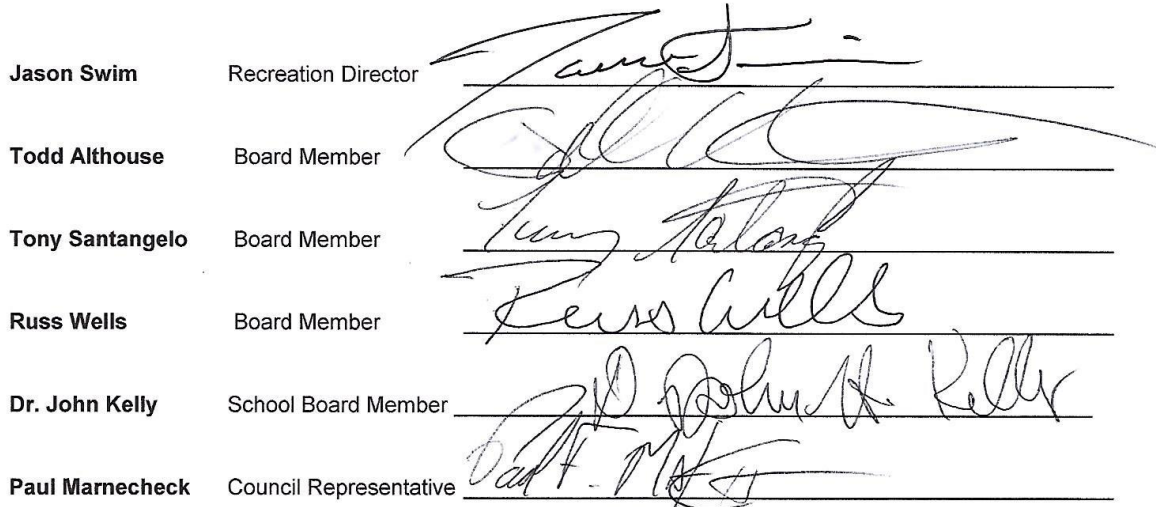 Jason Swim Recreation Director
Todd Althouse Board Member
Tony Santangelo Board Member
Russ Wells Board Member Russ Wells
Dr. John Kelly School Board Member Dr John H. Kelly
Paul Marnecheck Council Representative Paul F.